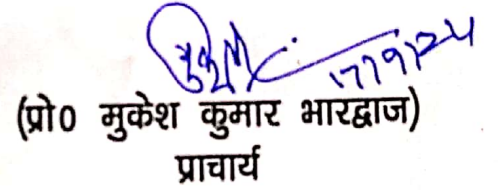 17/9/24
(प्रो0 मुकेश कुमार भारद्वाज)
प्राचार्य